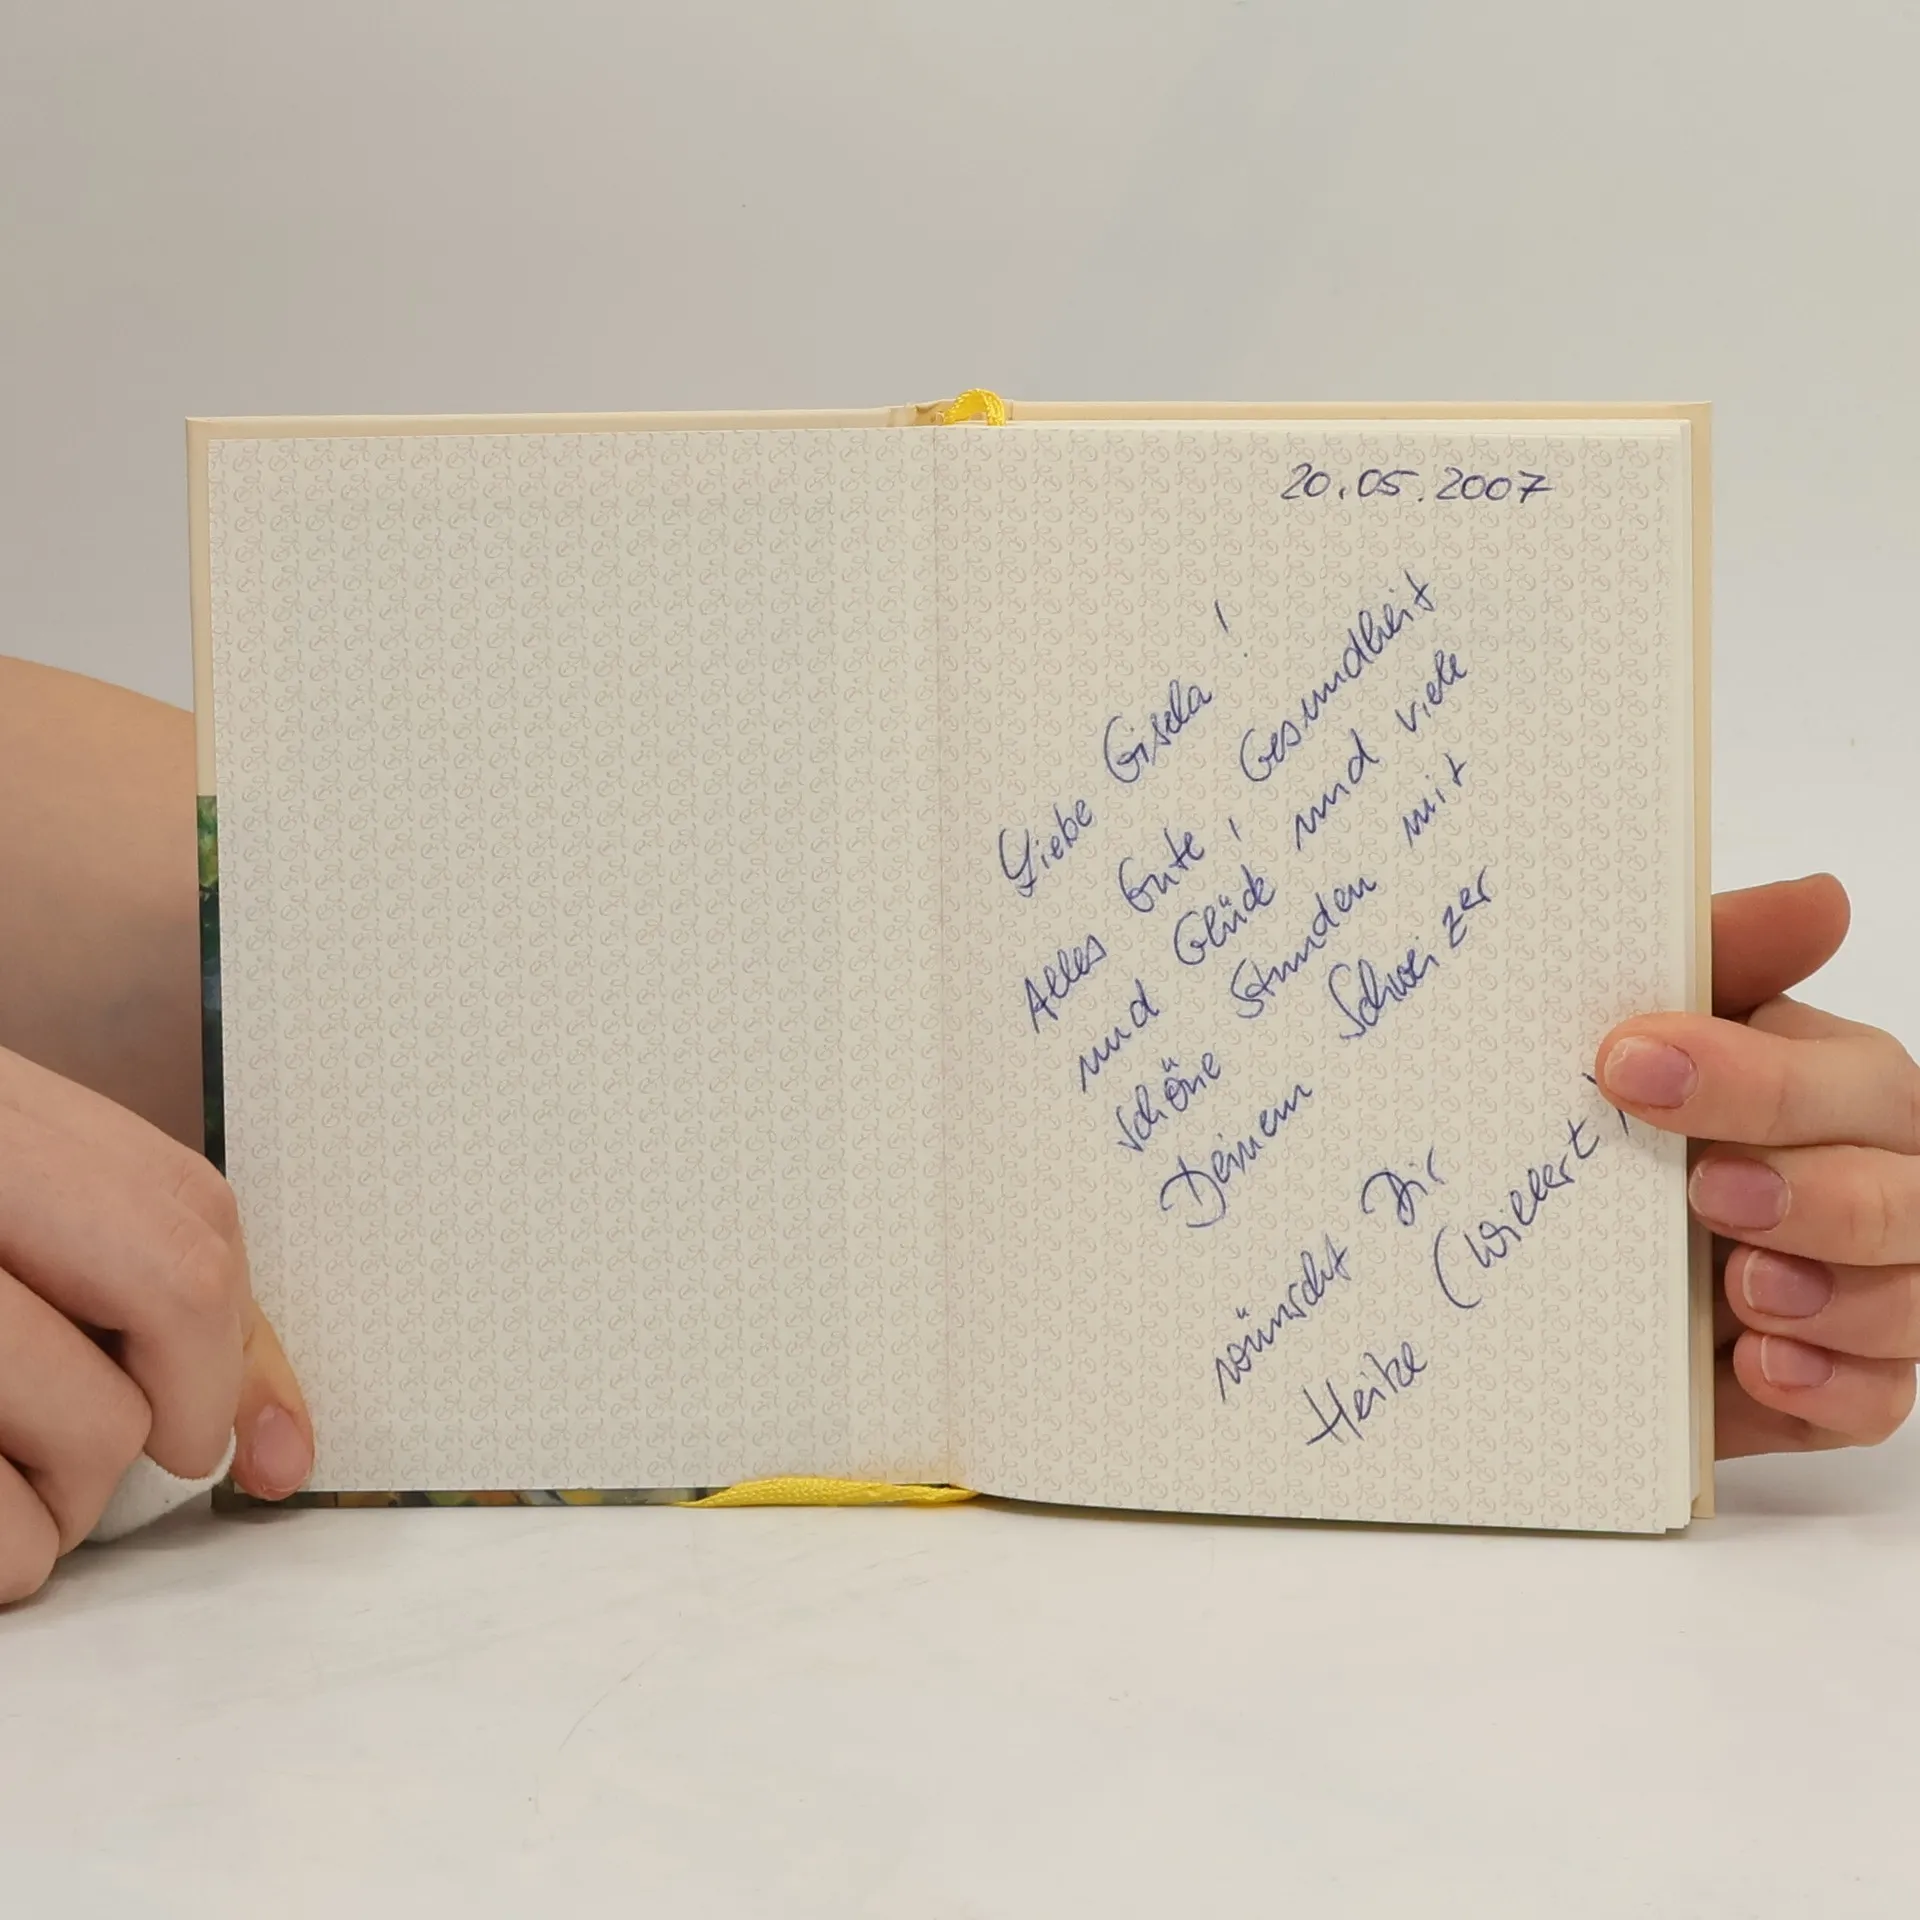 20.05.2007
Liebe Gisela!
Alles Gute, Gesundheit
und Glück und viele
schöne Stunden mit
Deinem Schweizer
wünscht Dir
Heike (Willert)